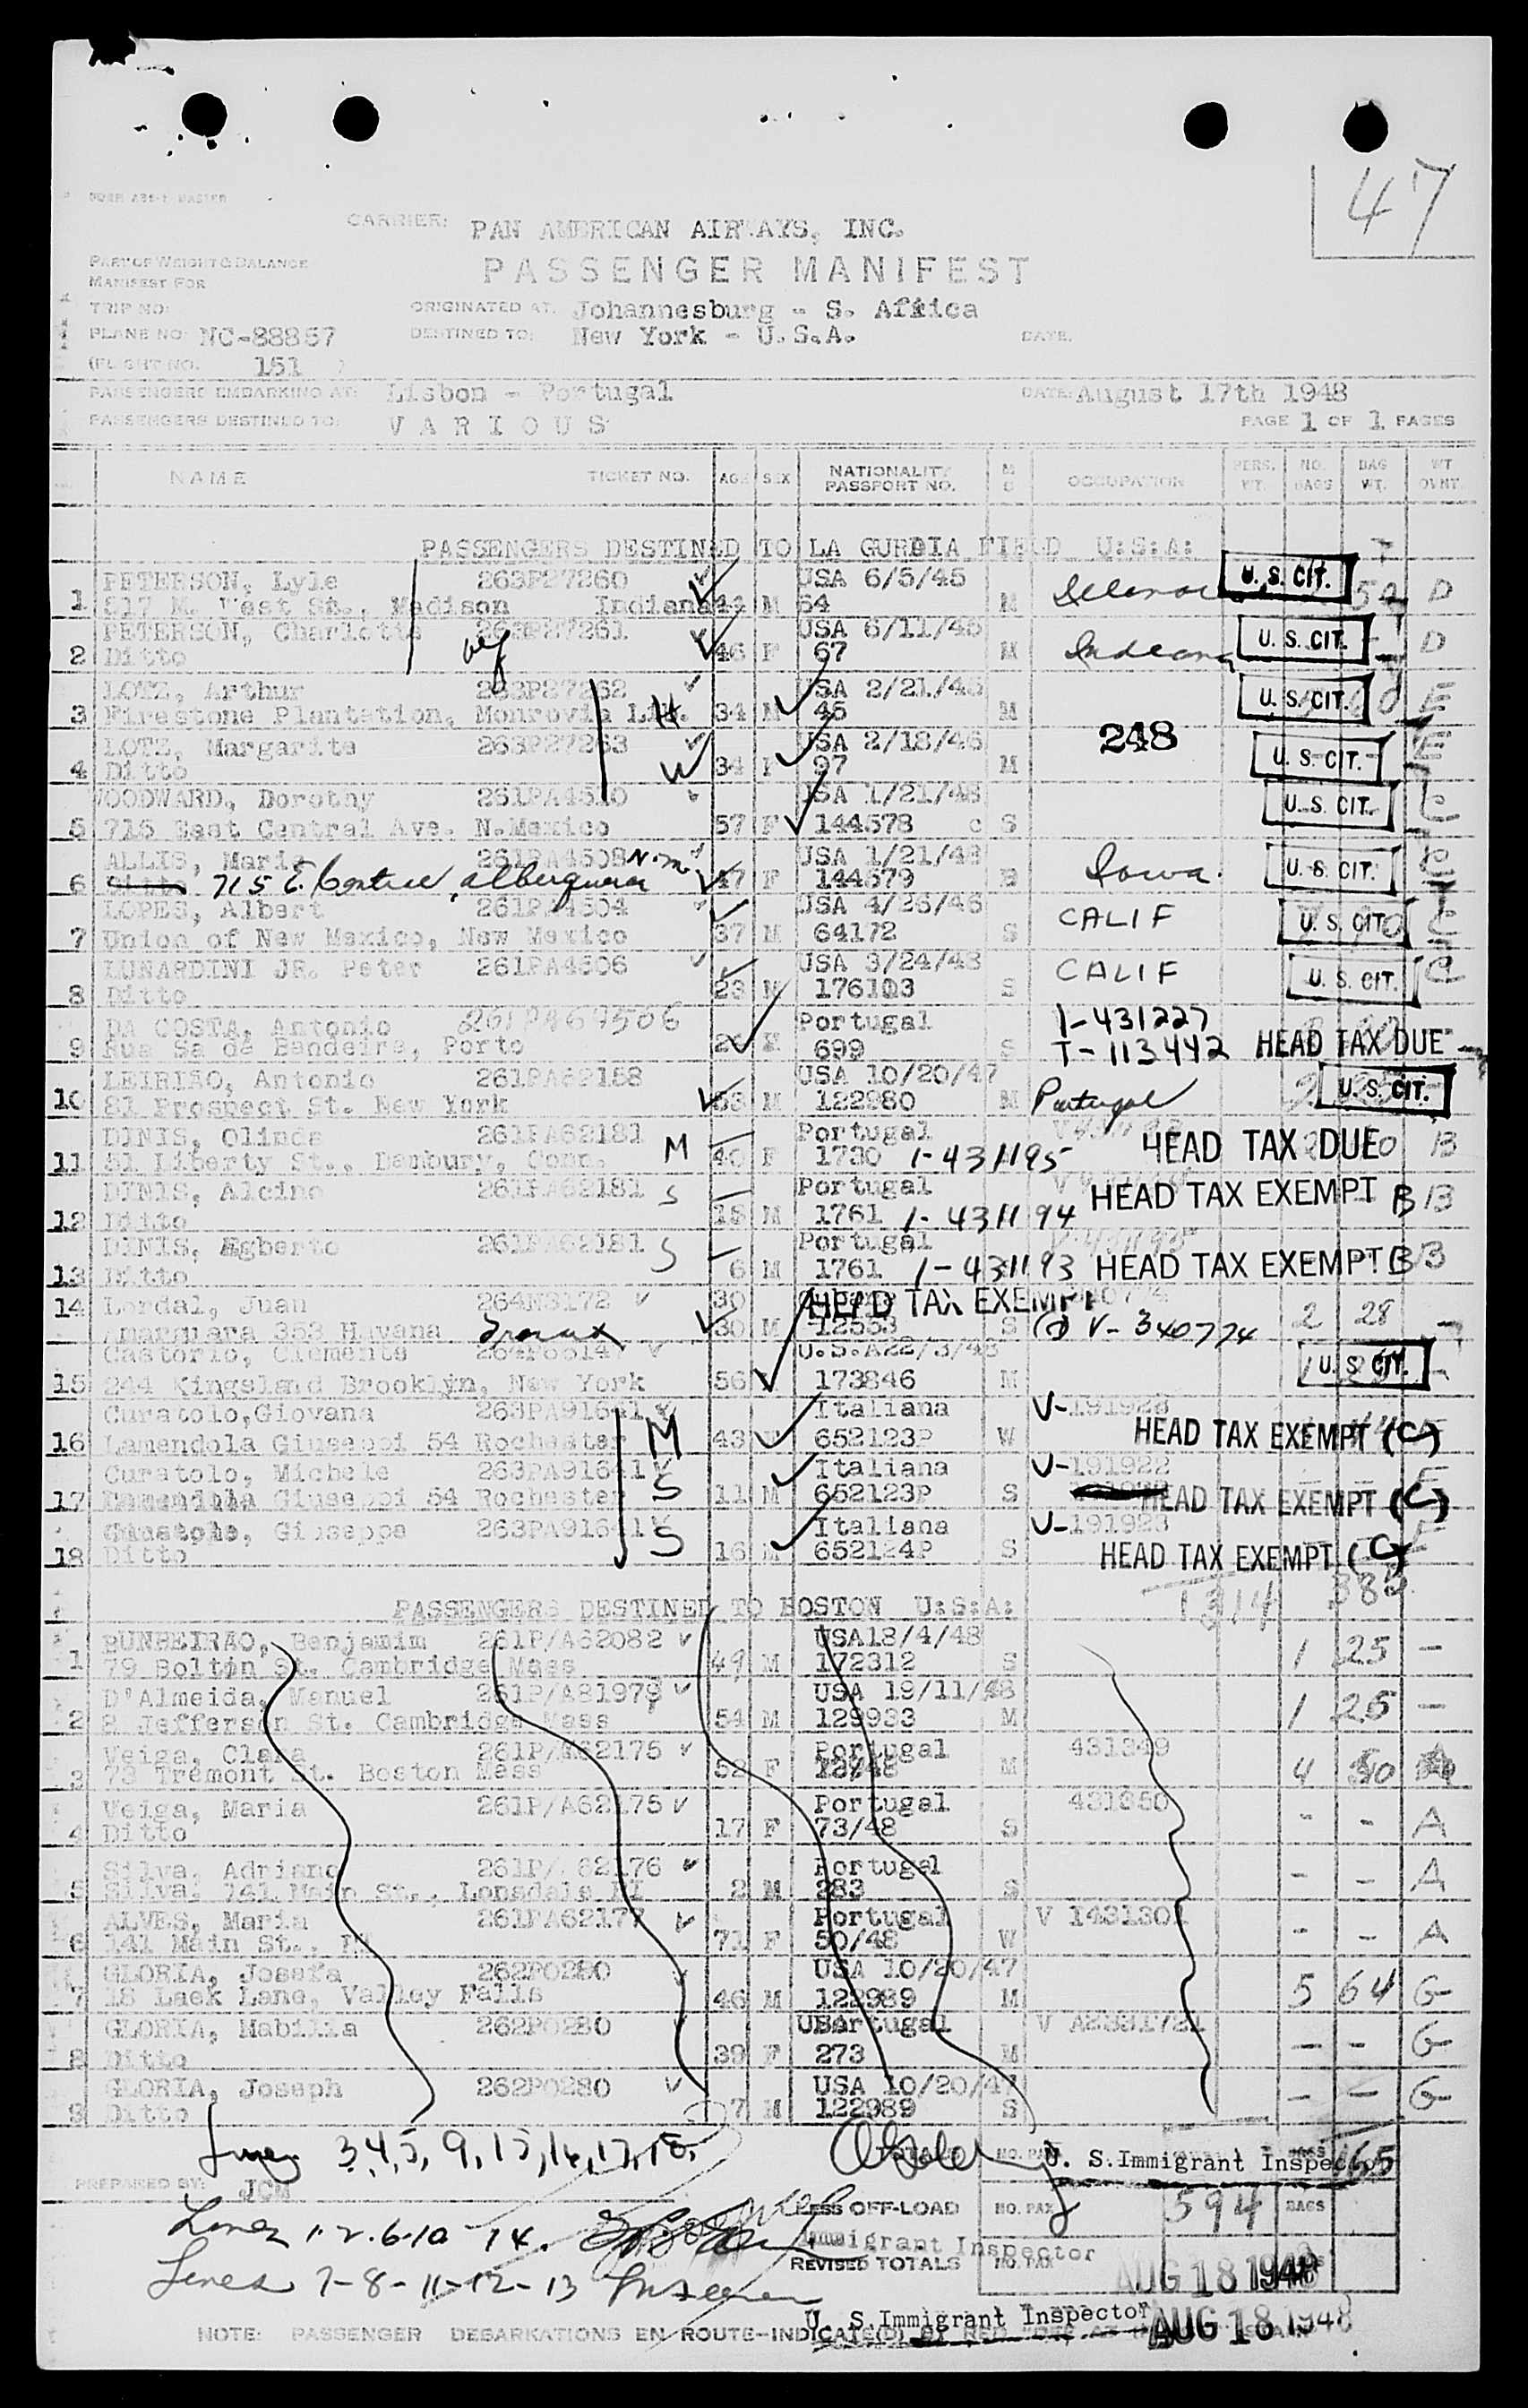 47
CARRIER: PAN AMERICAN AIRWAYS, INC.
PART OF WEIGHT & BALANCE
MANIFEST FOR
PASSENGER MANIFEST
TRIP NO:
ORIGINATED AT: Johannesburg - S. Africa
PLANE NO: NC-88857
DESTINED TO: New York - U.S.A.
DATE.
(FLIGHT NO. 151 )
PASSENGERS EMBARKING AT: Lisbon - Portugal DATE: August 17th 1948
PASSENGERS DESTINED TO: VARIOUS PAGE 1 OF 1 PAGES
NAME TICKET NO. AGE SEX NATIONALITY PASSPORT NO. M S OCCUPATION PERS. WT. NO. BAGS BAG WT. WT OVHT.
PASSENGERS DESTINED TO LA GURDIA FIELD U:S:A:
PETERSON, Lyle 263P27260 USA 6/5/45 U. S. CIT.
1 817 N. West St., Madison Indiana 44 M 64 M D
PETERSON, Charlotte 263P27261 USA 6/11/45 U. S. CIT.
2 Ditto 46 F 67 M Indiana D
LOTZ, Arthur 263P27262 USA 2/21/46 U. S. CIT.
3 Firestone Plantation, Monrovia Lib. H. 34 M 45 M E
LOTZ, Margarite 263P27263 USA 2/18/46 248 U. S. CIT. E
4 Ditto W 34 F 97 M
WOODWARD, Dorothy 261PA4510 USA 1/21/48 U. S. CIT.
5 715 East Central Ave. N.Mexico 57 F 144578 c S
ALLIS, Marie 261PA4508 N.M. USA 1/21/48 U. S. CIT.
6 715 E. Central, Albuquerque 47 F 144579 Iowa.
LOPES, Albert 261PA4504 USA 4/26/46 CALIF U. S. CIT.
7 Union of New Mexico, New Mexico 37 M 64172 S
LUNARDINI JR. Peter 261PA4506 USA 3/24/48 CALIF U. S. CIT.
8 Ditto 23 M 176103 S
DA COSTA, Antonio 261PA67506 Portugal 1-431227
9 Rua Sa da Bandeira, Porto 699 S T-113442 HEAD TAX DUE
LEIRIAO, Antonio 261PA62158 USA 10/20/47 U. S. CIT.
10 81 Prospect St. New York 53 M 122980 M Portugal
DINIS, Olinda 261PA62181 M Portugal HEAD TAX DUE B
11 51 Liberty St., Danbury, Conn. 40 F 1730 1-431195
DINIS, Alcino 261PA62181 S Portugal HEAD TAX EXEMPT B B
12 Ditto 15 M 1761 1-431194
DINIS, Egberto 261PA62181 S Portugal
13 Ditto 6 M 1761 1-431193 HEAD TAX EXEMPT B B
14 Lordal, Juan 264N3172 30 HEAD TAX EXEMPT 2 28
Amarguara 353 Havana Transit 30 M 12553 S V-340774
Castorio, Clemente U.S.A22/3/48 U. S. CIT.
15 244 Kingsland Brooklyn, New York 56 173846 M
Curatolo,Giovana 263PA91641 M Italiana V-191923
16 Lamendola Giuseppi 54 Rochester 43 652123P W HEAD TAX EXEMPT (C)
Curatolo, Michele 263PA91641 S Italiana V-191922
17 Lamendola Giuseppi 54 Rochester 11 M 652123P S HEAD TAX EXEMPT (C)
Curatolo, Giuseppe 263PA91641 S Italiana V-191923
18 Ditto 16 M 652124P S HEAD TAX EXEMPT (C)
1314
PASSENGERS DESTINED TO BOSTON U:S:A:
BUNHEIRAO, Benjamim 261P/A62082 USA18/4/48
1 79 Bolton St. Cambridge Mass 49 M 172312 S 1 25 -
D'Almeida, Manuel 261P/A81979 USA 19/11/48
2 2 Jefferson St. Cambridge Mass 54 M 129933 M 1 25 -
Veiga, Clara 261P/A62175 Portugal 431349
3 73 Tremont St. Boston Mass 52 F M 4
Veiga, Maria 261P/A62175 Portugal 431350
4 Ditto 17 F 73/48 S - - A
Silva, Adriano 261P/ 62176 Portugal
5 Silva, 141 Main St., Lonsdale RI 2 M 283 S - - A
ALVES, Maria 261PA62177 Portugal V 1431301
6 141 Main St., RI 71 F 50/48 W - - A
GLORIA, Josefa 262P0280 USA 10/20/47
7 18 Laek Lane, Valley Falls 46 M 122989 M 5 64 G
GLORIA, Mabilia 262P0280 Portugal
8 Ditto 39 F 273 M - - G
GLORIA, Joseph 262P0280 USA 10/20/47
9 Ditto 7 M 122989 S - - G
Lines 3,4,5, 9, 15, 16, 17, 18. NO. PAX U. S. Immigrant Inspector 165
PREPARED BY: JCM
LESS OFF-LOAD NO. PAX 594 BAGS
Lines 1.2.6.10 - 14.
Immigrant Inspector
REVISED TOTALS NO. PAX
AUG 18 1948
Lines 7-8-11-12-13
U. S. Immigrant Inspector AUG 18 1948
NOTE: PASSENGER DEBARKATIONS EN ROUTE-INDICATE(D)